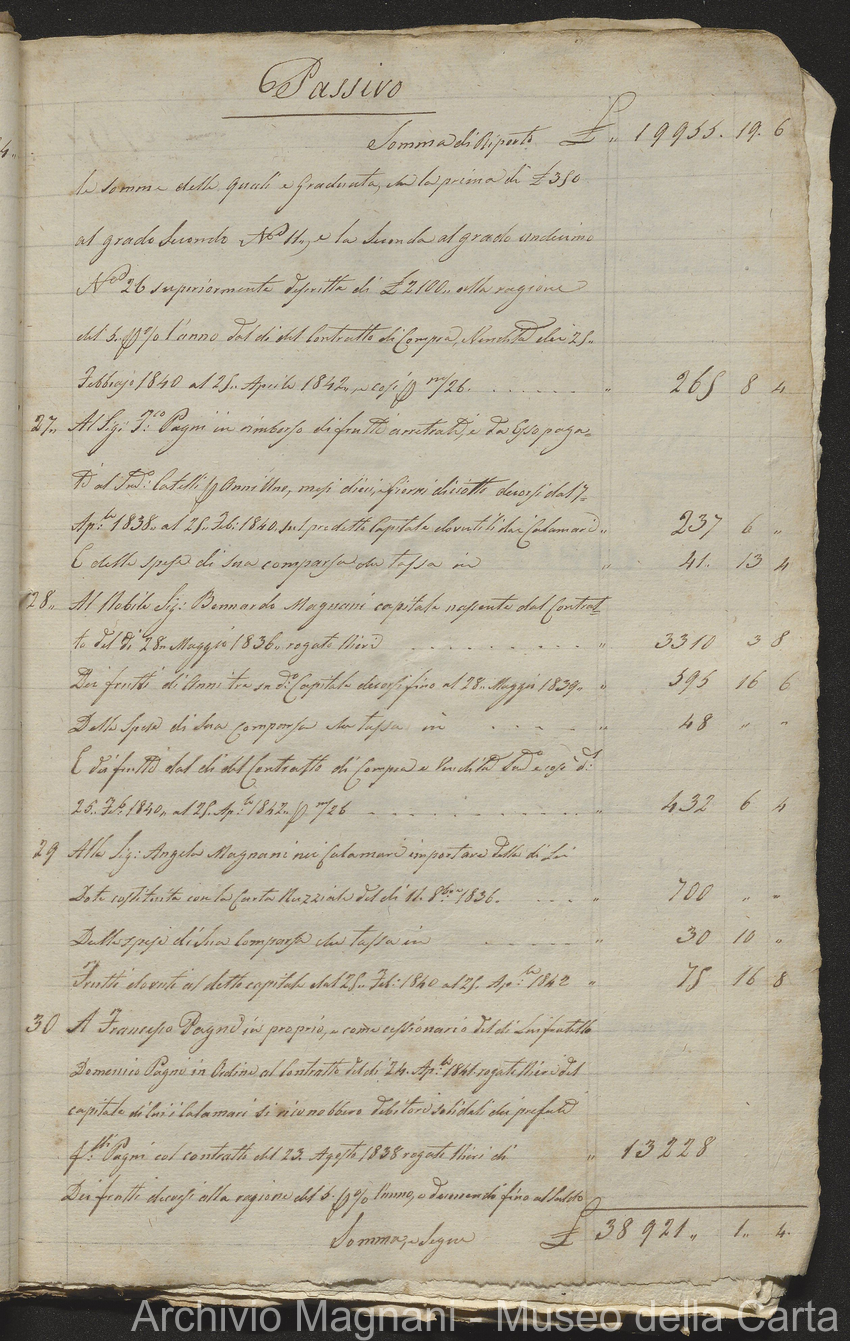 Passivo
Somma di Riporto £ „ 19955. 19. 6
le somme delle quali è Graduata, cioè la prima di £350
al grado Secondo Nº 11„, e la Seconda al grado undecimo
Nº 26 superiormente descritta di £2100„ alla ragione
del 5. p % l'anno dal dì del Contratto di Compra, e Vendita dei 25„
Febbrajo 1840 al 25„ Aprile 1842„, e così p m/26. „ 265 8 4
27„ Al Sig: F:co Pagni in rimborso di frutti arretrati, e da Esso paga=
ti al Sudº: Catelli p Anni Uno, mesi dieci, e giorni diciotto decorsi dal 7=
Ap:le 1838„ al 25„ Feb: 1840. sul predetto Capitale dovutili dai Calamari „ 237 6 „
E delle spese di sua comparsa che tassa in „ 41. 13 4
28„ Al Nobile Sig: Bernardo Magnani capitale nascente dal Contrat=
to del dì 28„ Maggio 1836„ rogato Nieri „ 3310 3 8
Dei frutti di Anni tre su dº: Capitale decorsi fino al 28„ Maggio 1839„ „ 595 16 6
Delle Spese di Sua Comparsa che tassa in „ 48 „ „
E dei frutti dal dì del Contratto di Compra e Vendita Sudº e così dº:
25„ Feb: 1840„ al 25„ Ap:le 1842„ p m/26 „ 432 6 4
29 Alla Sig: Angela Magnani nei Calamari importare della di Lei
Dote costituita con la Carta Nuzziale del dì 11. 8bre 1836. „ 700 „ „
Delle spese di Sua Comparsa che tassa in „ 30 10 „
Frutti dovuti al detto capitale dal 25„ Feb: 1840 al 25„ Ap:le 1842 „ 75 16 8
30 A Francesco Pagni in proprio, e come cessionario del di Lui fratello
Domenico Pagni in Ordine al Contratto del dì 24. Ap:le 1841 rogato Nieri del
capitale di cui i Calamari si riconobbero debitori solidali dei prefati
f:lli Pagni col contratto del 23. Agosto 1838 rogato Nieri di „ 13228
Dei frutti decorsi alla ragione del 5. p % l'anno, e decorrendi fino al Saldo
Somma, e Segue £ 38921„ 1„ 4.
Archivio Magnani - Museo della Carta